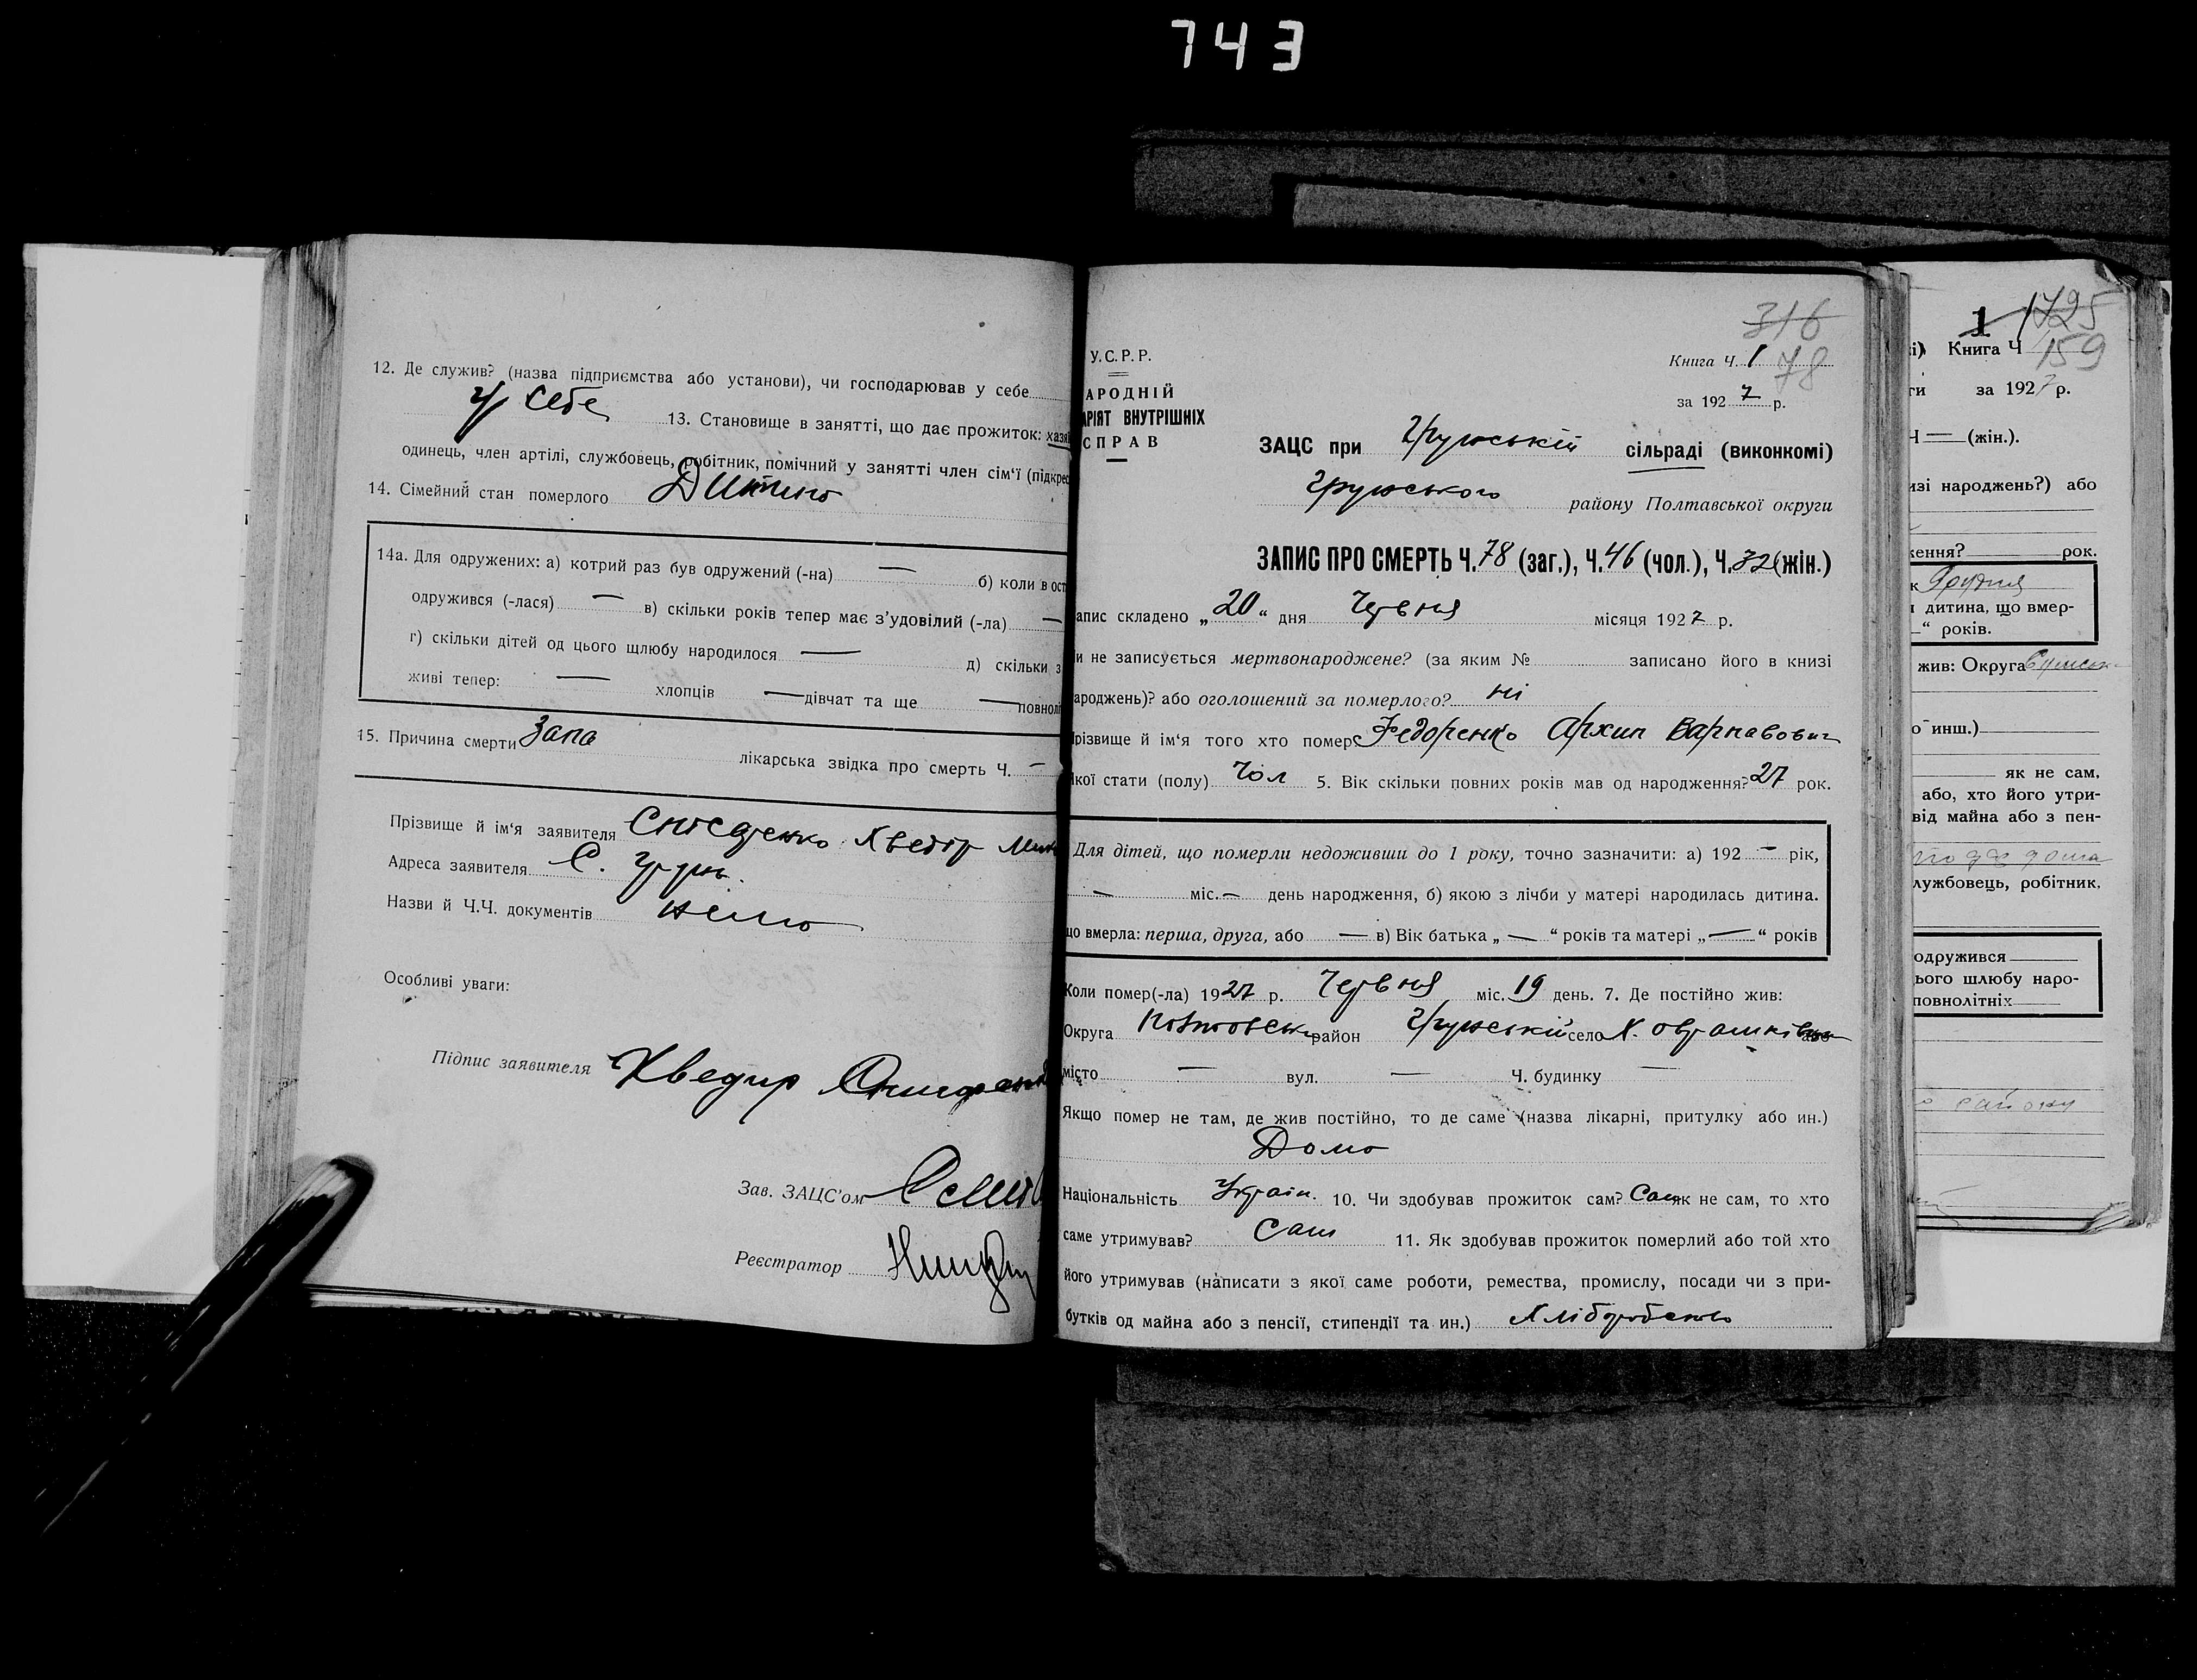 743
12. Де служив? (назва підприємства або установи), чи господарював у себе
у себе 13. Становище в занятті, що дає прожиток: хазя
одинець, член артілі, службовець, робітник, помічний у занятті член сім'ї (підкрес
14. Сімейний стан померлого Дитина
14а. Для одружених: а) котрий раз був одружений (-на) — б) коли в ост
одружився (-лася) — в) скільки років тепер має з'удовілий (-ла) —
г) скільки дітей од цього шлюбу народилося — д) скільки з
живі тепер: — хлопців — дівчат та ще — повнолі
15. Причина смерти
лікарська звідка про смерть Ч. —
Прізвище й ім'я заявителя Хведір
Адреса заявителя С. Грунь.
Назви й Ч.Ч. документів нема
Особливі уваги:
Підпис заявителя Хведир
Зав. ЗАЦС'ом
Реєстратор
316
У.С.Р.Р.
Книга Ч. 1 78
АРОДНІЙ
за 1927 р.
АРІЯТ ВНУТРІШНІХ
СПРАВ
ЗАЦС при Грунській сільраді (виконкомі)
Грунського району Полтавської округи
ЗАПИС ПРО СМЕРТЬ Ч. 78 (заг.), Ч. 46 (чол.), Ч. 32 (жін.)
апис складено „20“ дня Червня місяця 1927 р.
и не записується мертвонароджене? (за яким № записано його в книзі
ароджень)? або оголошений за померлого? ні
різвище й ім'я того хто помер Федоренко Архип Варнавович
кої стати (полу) Чол 5. Вік скільки повних років мав од народження? 27 рок.
Для дітей, що померли недоживши до 1 року, точно зазначити: а) 192 — рік,
— міс. — день народження, б) якою з лічби у матері народилась дитина.
що вмерла: перша, друга, або — в) Вік батька „ — “ років та матері „ — “ років
Коли помер(-ла) 1927 р. Червня міс. 19 день. 7. Де постійно жив:
Округа район Грунській село Х.
місто — вул. — Ч. будинку —
Якщо помер не там, де жив постійно, то де саме (назва лікарні, притулку або ин.)
Дома
Національність Україн. 10. Чи здобував прожиток сам? Сам як не сам, то хто
саме утримував? Сам 11. Як здобував прожиток померлий або той хто
його утримував (написати з якої саме роботи, ремества, промислу, посади чи з при-
бутків од майна або з пенсії, стипендії та ин.) Хліборобство
1 1725
і) Книга Ч 159
ти за 1927 р.
Ч — (жін.).
изі народжень?) або
ження? рок.
к Грудня
дитина, що вмер-
— “ років.
жив: Округа
о инш.)
як не сам,
або, хто його утри-
від майна або з пен-
лужбовець, робітник,
одружився
ього шлюбу наро-
повнолітніх